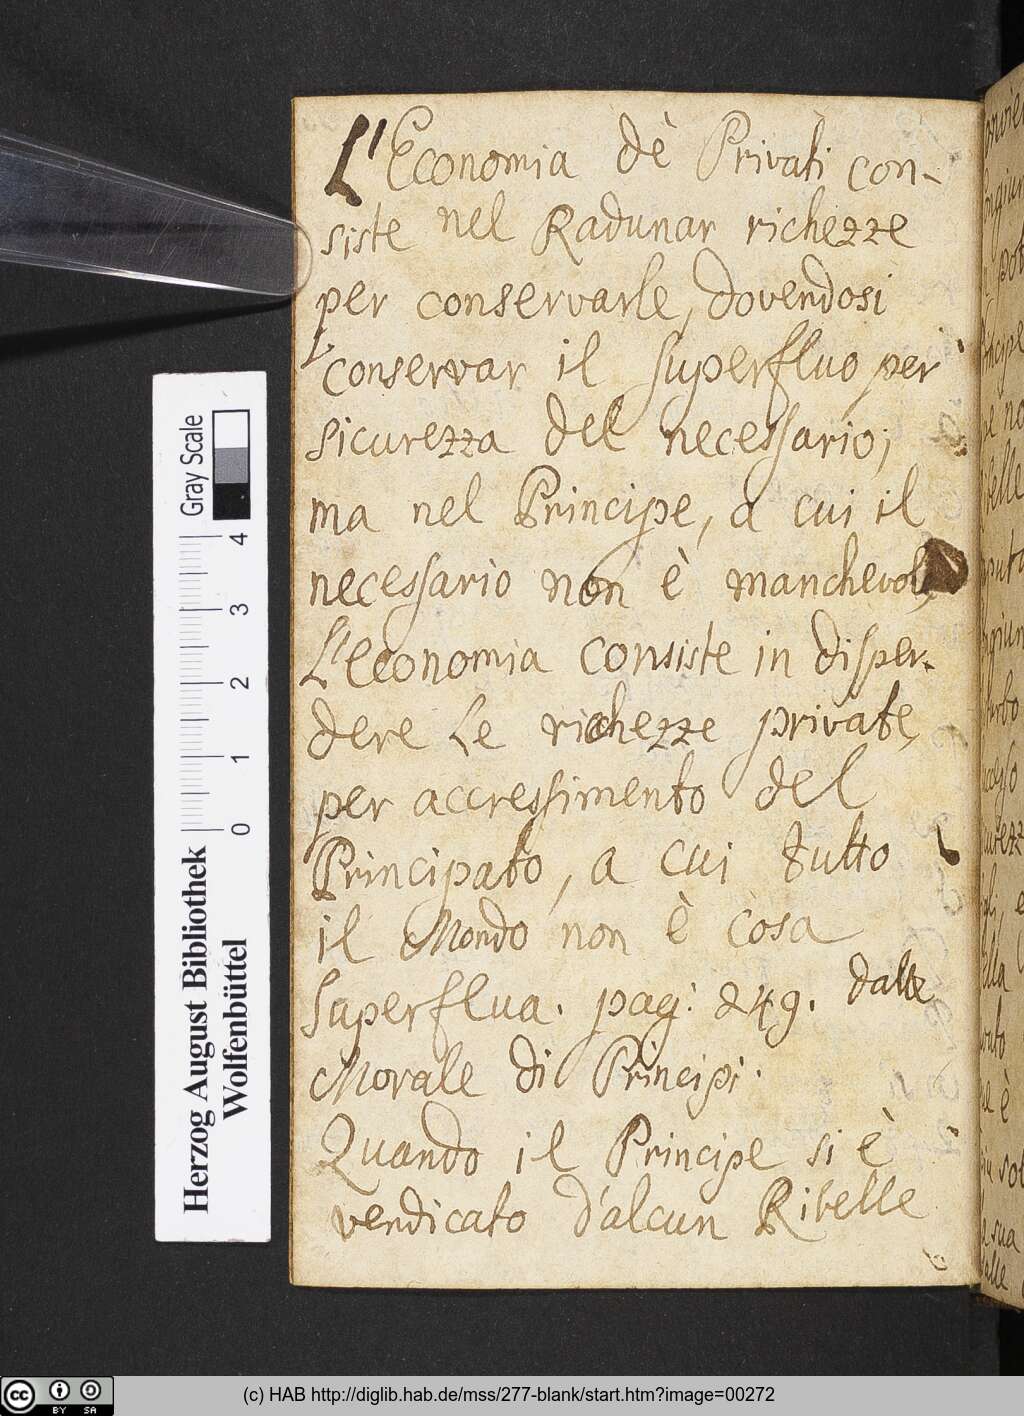 L'Economia dè Privati con-
siste nel Radunar richezze
per conservarle, dovendosi
conservar il superfluo per
sicurezza del necessario;
ma nel Principe, a cui il
necessario non è manchevole,
L'economia consiste in disper-
dere le richezze private,
per accressimento del
Principato, a cui tutto
il Mondo non è cosa
superflua. pag: 249. dalla
Morale di Principi.
Quando il Principe si è
vendicato d'alcun Ribelle
Gray Scale
4
3
2
1
0
Herzog August Bibliothek
Wolfenbüttel
cc BY SA
(c) HAB http://diglib.hab.de/mss/277-blank/start.htm?image=00272